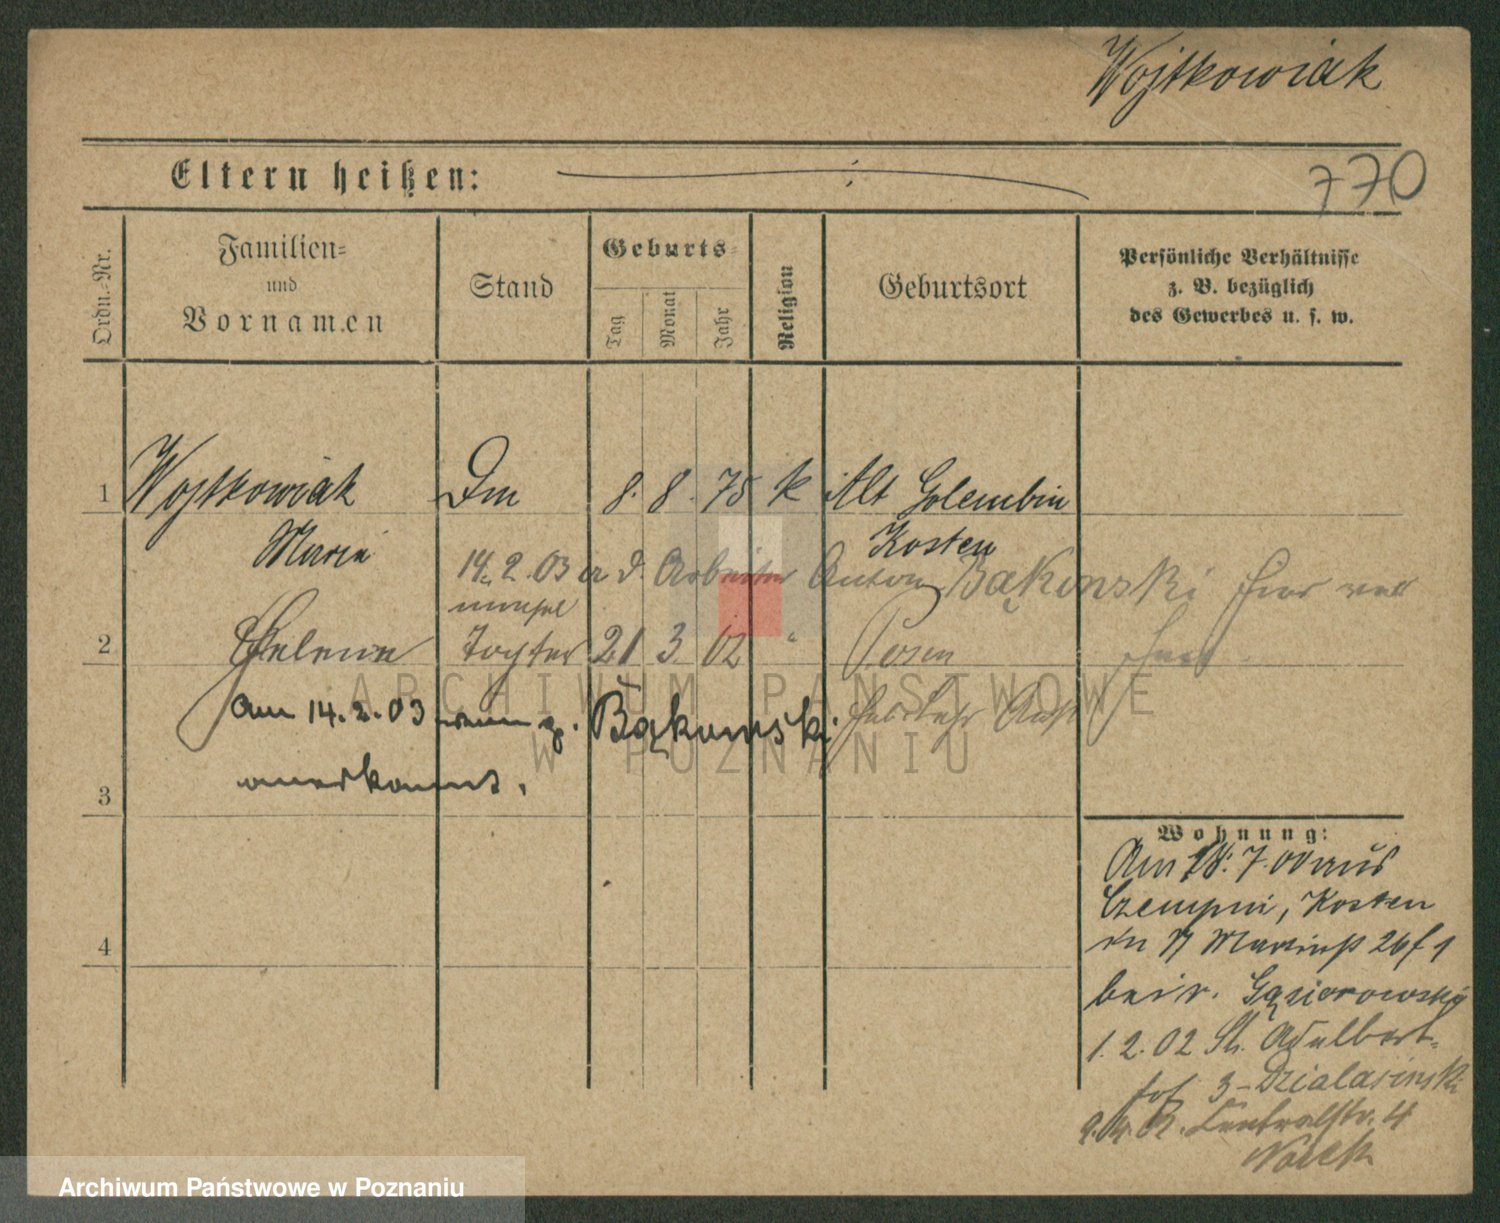 Wojtkowiak
770
Eltern heißen:
Ordn.-Nr.
Familien-
und
Vornamen
Stand
Geburts-
Tag
Monat
Jahr
Religion
Geburtsort
Persönliche Verhältnisse
z. B. bezüglich
des Gewerbes u. s. w.
1 Wojtkowiak Dm 8. 8. 75 k Alt Golembin
Marie Kosten
14.2.03 d. Arbeiter Anton Bąkowski
2 Helene Tochter 21 3. 02 " Posen
am 14.2.03 von Bąkowski
anerkannt.
3
4
Wohnung:
Am 18. 7. 00 aus
Czempin, Kosten
in Martinst 26 f 1
bei v. Gąsiorowski
1. 2. 02 St. Adalbert-
hof 3 - Dzialasinski
9.4.02. Centralstr. 4
Nowak
ARCHIWUM PAŃSTWOWE
W POZNANIU
Archiwum Państwowe w Poznaniu